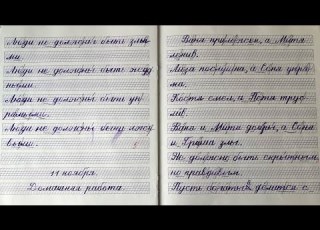 Люди не должны быть злы-
ми.
Люди не должны быть жад
ными.
Люди не должны быть уп
рямыми.
Люди не должны быть
выми.
11 ноября.
Домашняя работа.
Ваня прилежен, а Митя
ленив.
Лиза послушна, а Соня упря
ма.
Костя смел, а Петя трус
лив.
Вака и Митя добры, а Соня
и Гриша злы.
Но должно быть скрытным,
но правдивым.
Пусть богатый делится с